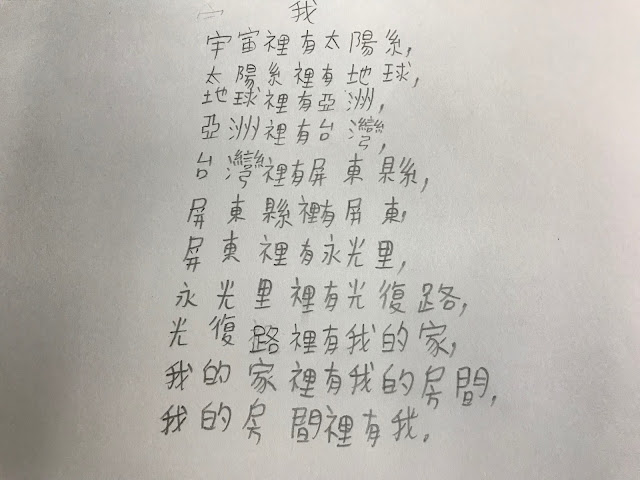 我
宇宙裡有太陽系,
太陽系裡有地球,
地球裡有亞洲,
亞洲裡有台灣,
台灣裡有屏東縣,
屏東縣裡有屏東,
屏東裡有永光里,
永光里裡有光復路,
光復路裡有我的家,
我的家裡有我的房間,
我的房間裡有我。